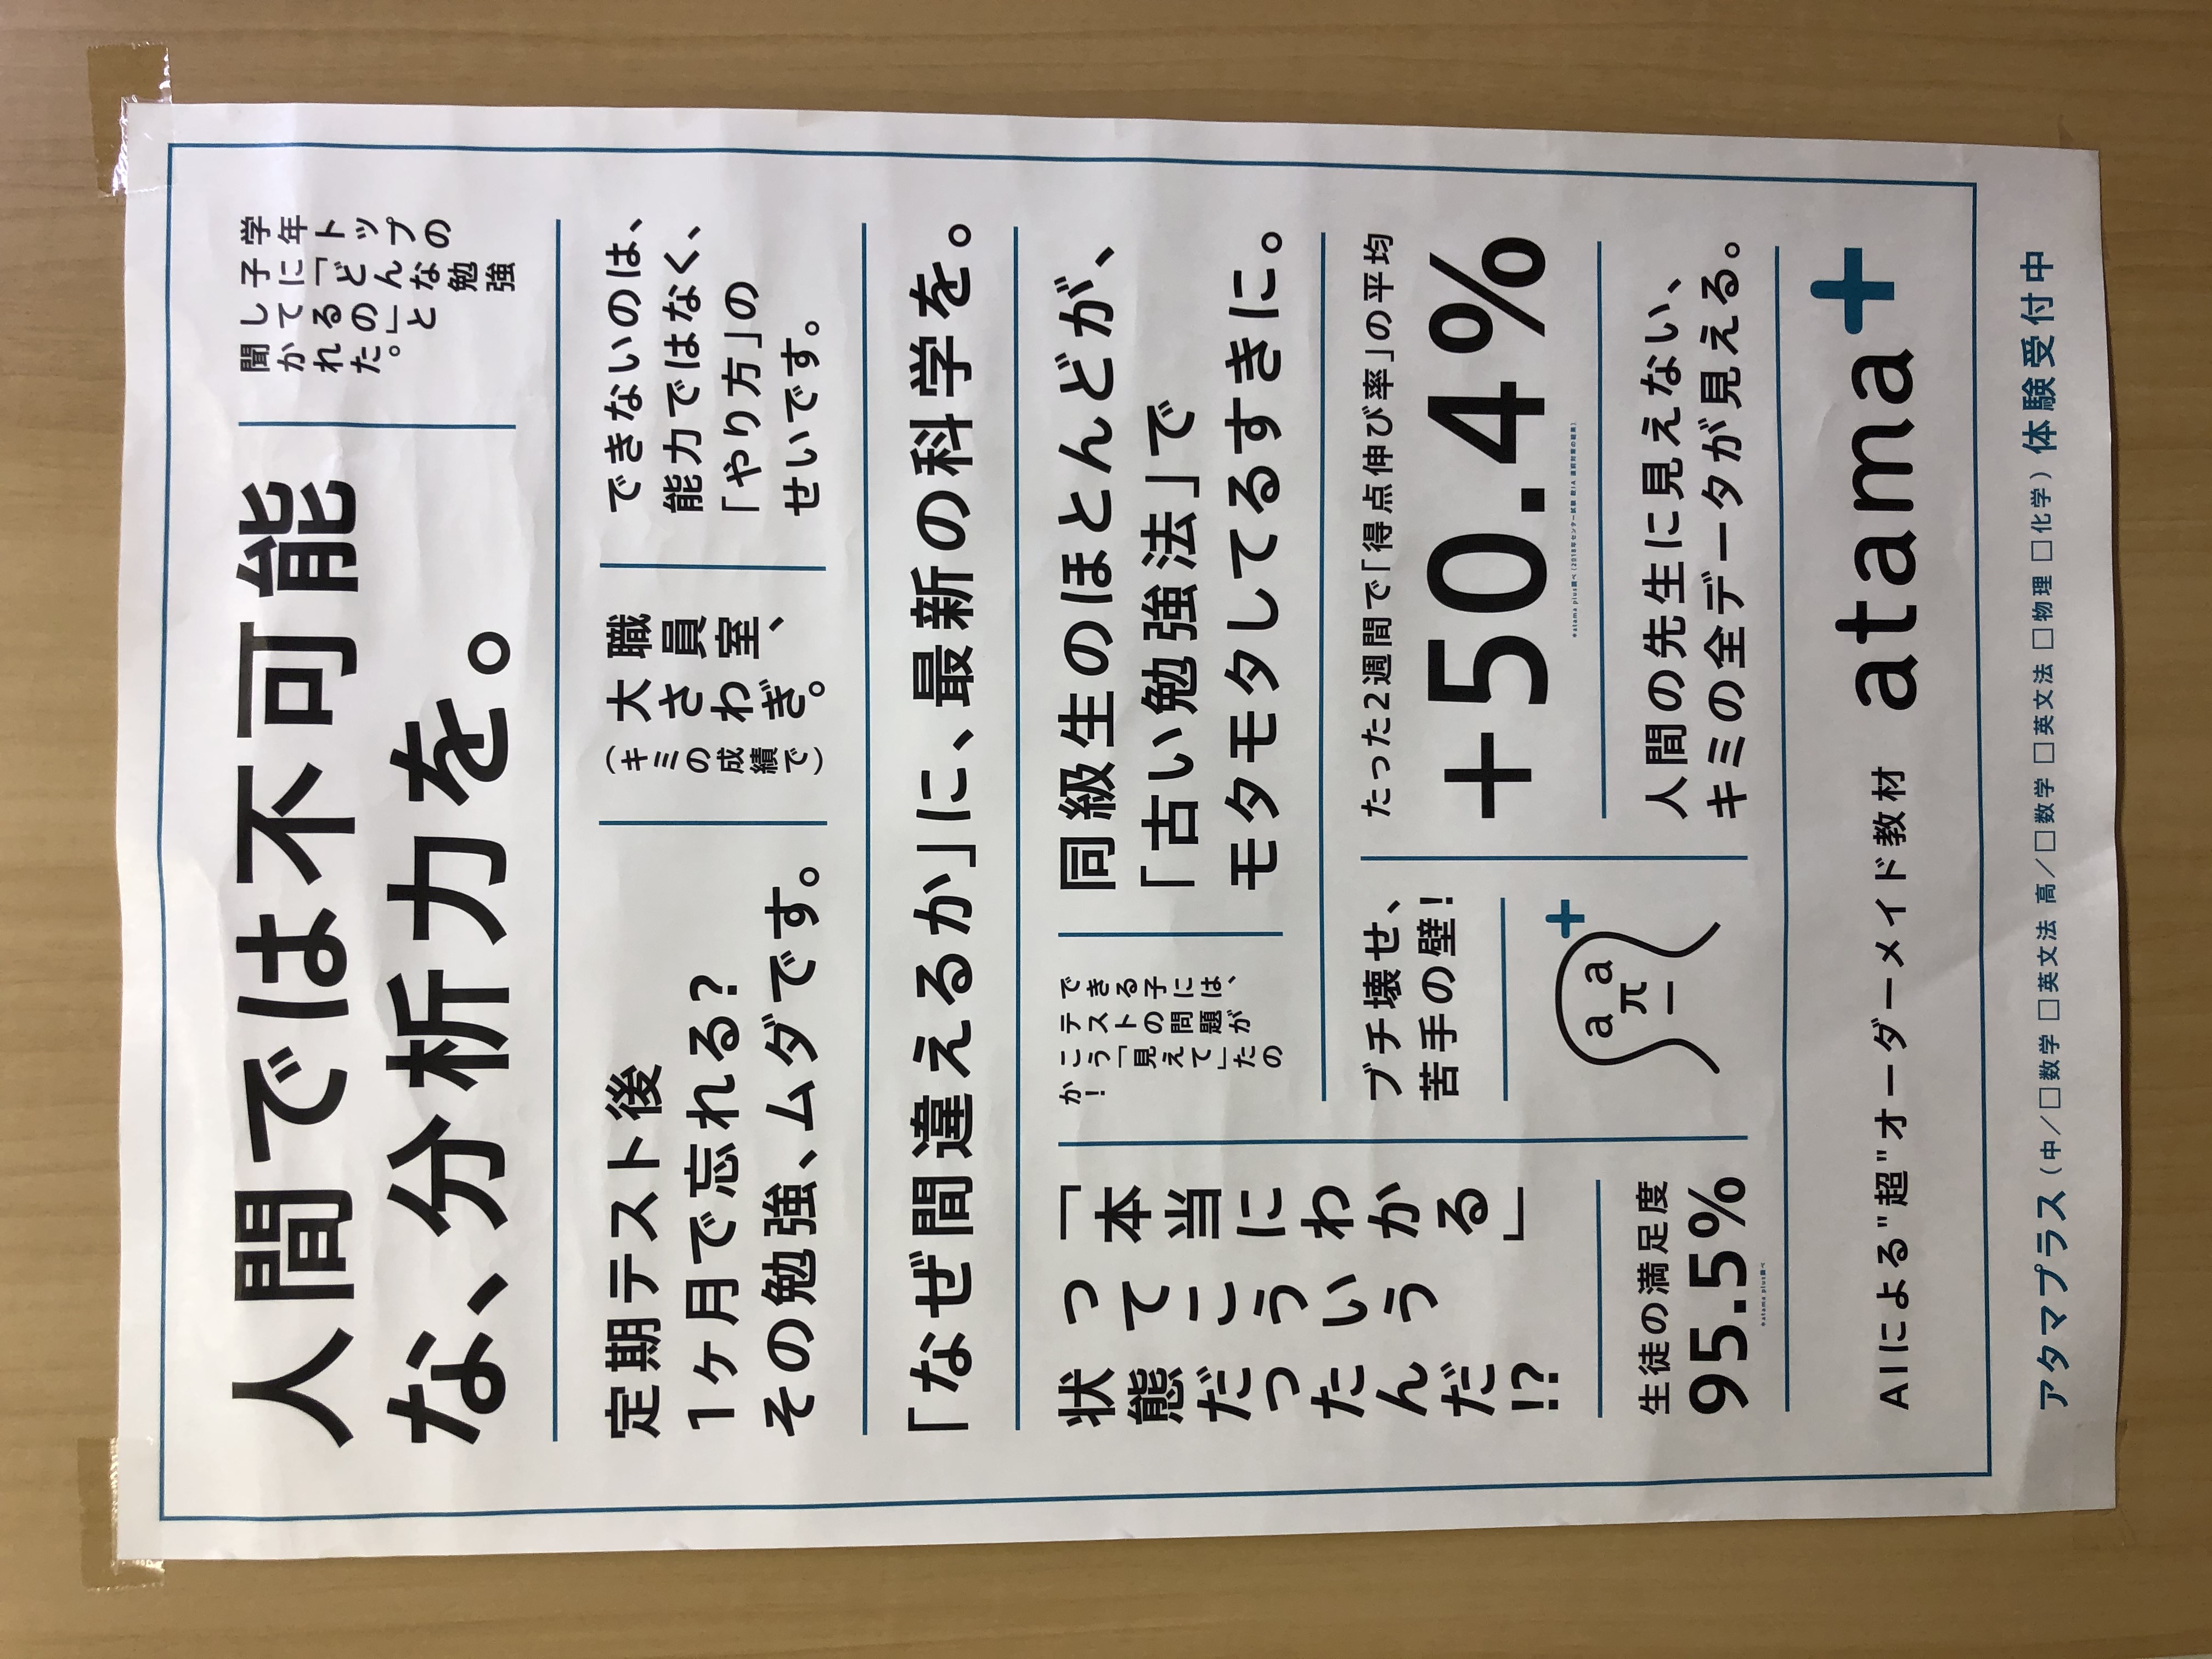 人間では不可能
な、分析力を。
学年トップの
子に「どんな勉強
してるの」と
聞かれた。
定期テスト後
1ヶ月で忘れる?
その勉強、ムダです。
職員室、
大さわぎ。
(キミの成績で)
できないのは、
能力ではなく、
「やり方」の
せいです。
「なぜ間違えるか」に、最新の科学を。
「本当にわかる」
ってこういう
状態だったんだ!?
できる子には、
テストの問題が
こう「見えて」たの
か!
同級生のほとんどが、
「古い勉強法」で
モタモタしてるすきに。
生徒の満足度
95.5%
※atama plus調べ
ブチ壊せ、
苦手の壁!
+
a a
π
たった2週間で「得点伸び率」の平均
+50.4%
※atama plus調べ(2018年センター試験 数IA
人間の先生に見えない、
キミの全データが見える。
AIによる"超"オーダーメイド教材 atama+
アタマプラス(中/□数学 □英文法 高/□数学 □英文法 □物理 □化学)体験受付中